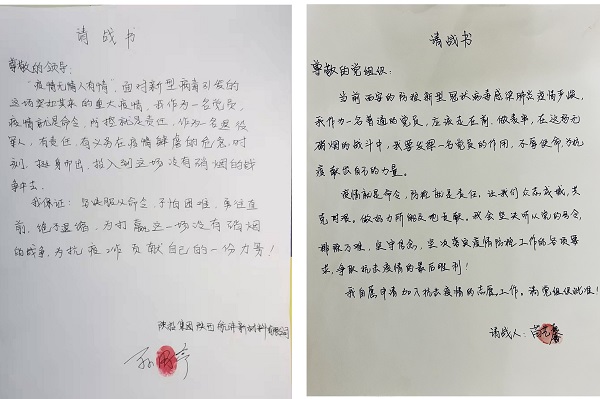 请战书
尊敬的领导:
“疫情无情人有情”面对新型病毒引发的
这场突如其来的重大疫情,我作为一名党员,
疫情就是命令,防控就是责任,作为一名退役
军人,有责任,有义务在疫情肆虐的危急时
刻,挺身而出,投入到这场没有硝烟的战
争中去。
我保证:坚决服从命令,不怕困难,勇往直
前,绝不退缩,为打赢这一场没有硝烟
的战争,为抗疫工作贡献自己的一份力量!
陕投集团陕西
新材料有限公司
请战书
尊敬的党组织:
当前西安的防控新型冠状病毒感染肺炎疫情严峻,
我作为一名普通的党员,应该走在前,做表率,在这场无
硝烟的战斗中,我要发挥一名党员的作用,不辱使命,为抗
疫献出自己的力量。
疫情就是命令,防控就是责任,让我们众志成城,共
克时艰,做好力所能及地贡献。我会坚决听从党的号令,
排除万难,坚守信念,坚决落实疫情防控工作的各项要
求,争取抗击疫情的最后胜利!
我自愿申请加入抗击疫情的志愿工作。请党组织批准!
请战人: